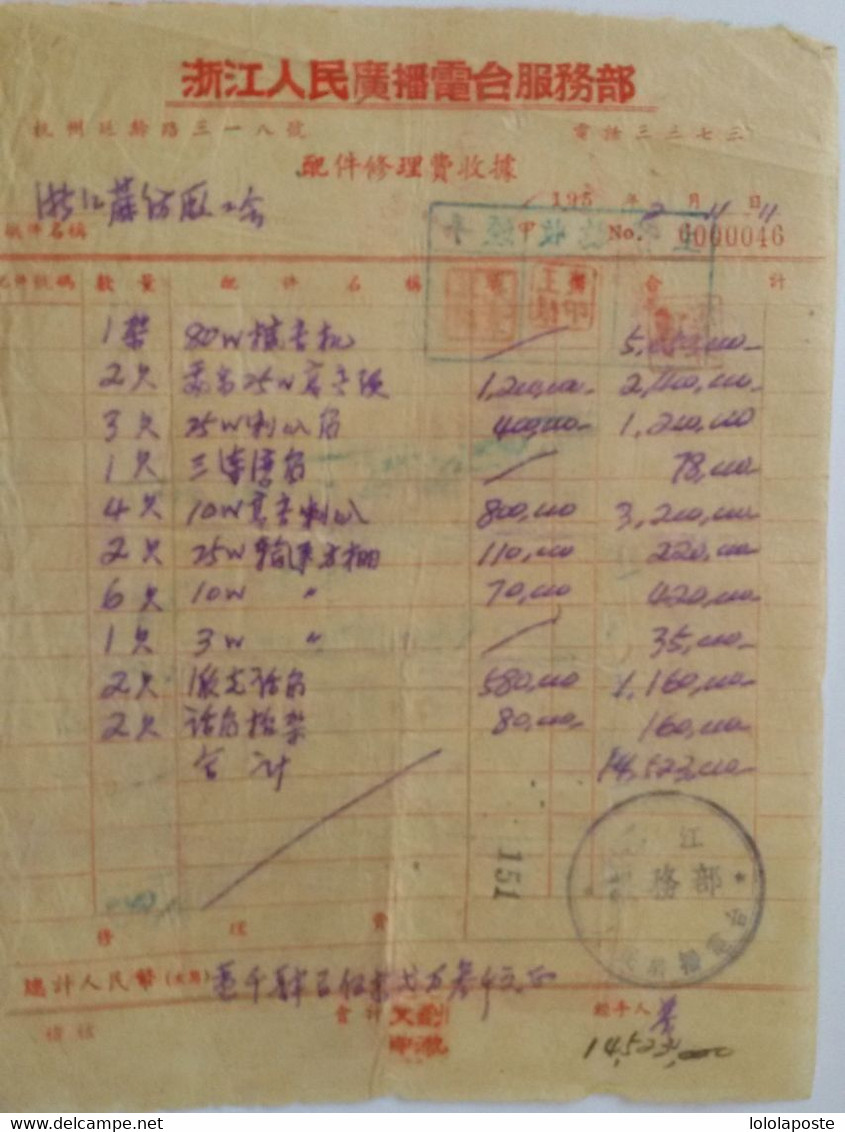 浙江人民廣播電台服務部
杭州延齡路三一八號 電話三三七三
配件修理費收據
浙江蔴紡廠工会 195 年 2 月 11 日 11
機件名稱 甲 No. 0000046
配件號碼 數量 配件名稱 單 合計
1架 80W擴音机 / 5,650,000-
2只 25W高音頭 1,200,000- 2,400,000-
3只 25W喇叭筒 400,000- 1,200,000
1只 / 78,000-
4只 10W高音喇叭 800,000 3,200,000-
2只 25W輸送方棚 110,000 220,000-
6只 10W 〃 70,000 420,000-
1只 3W 〃 / 35,000-
2只 話筒 580,000 1,160,000-
2只 話筒抬架 80,000- 160,000-
合計 14,523,000-
151
江
務部
播電台
修理費
總計人民幣(大寫) 壹千肆百伍拾弍万叁仟元正
會計 經手人
14,523,000
lololaposte